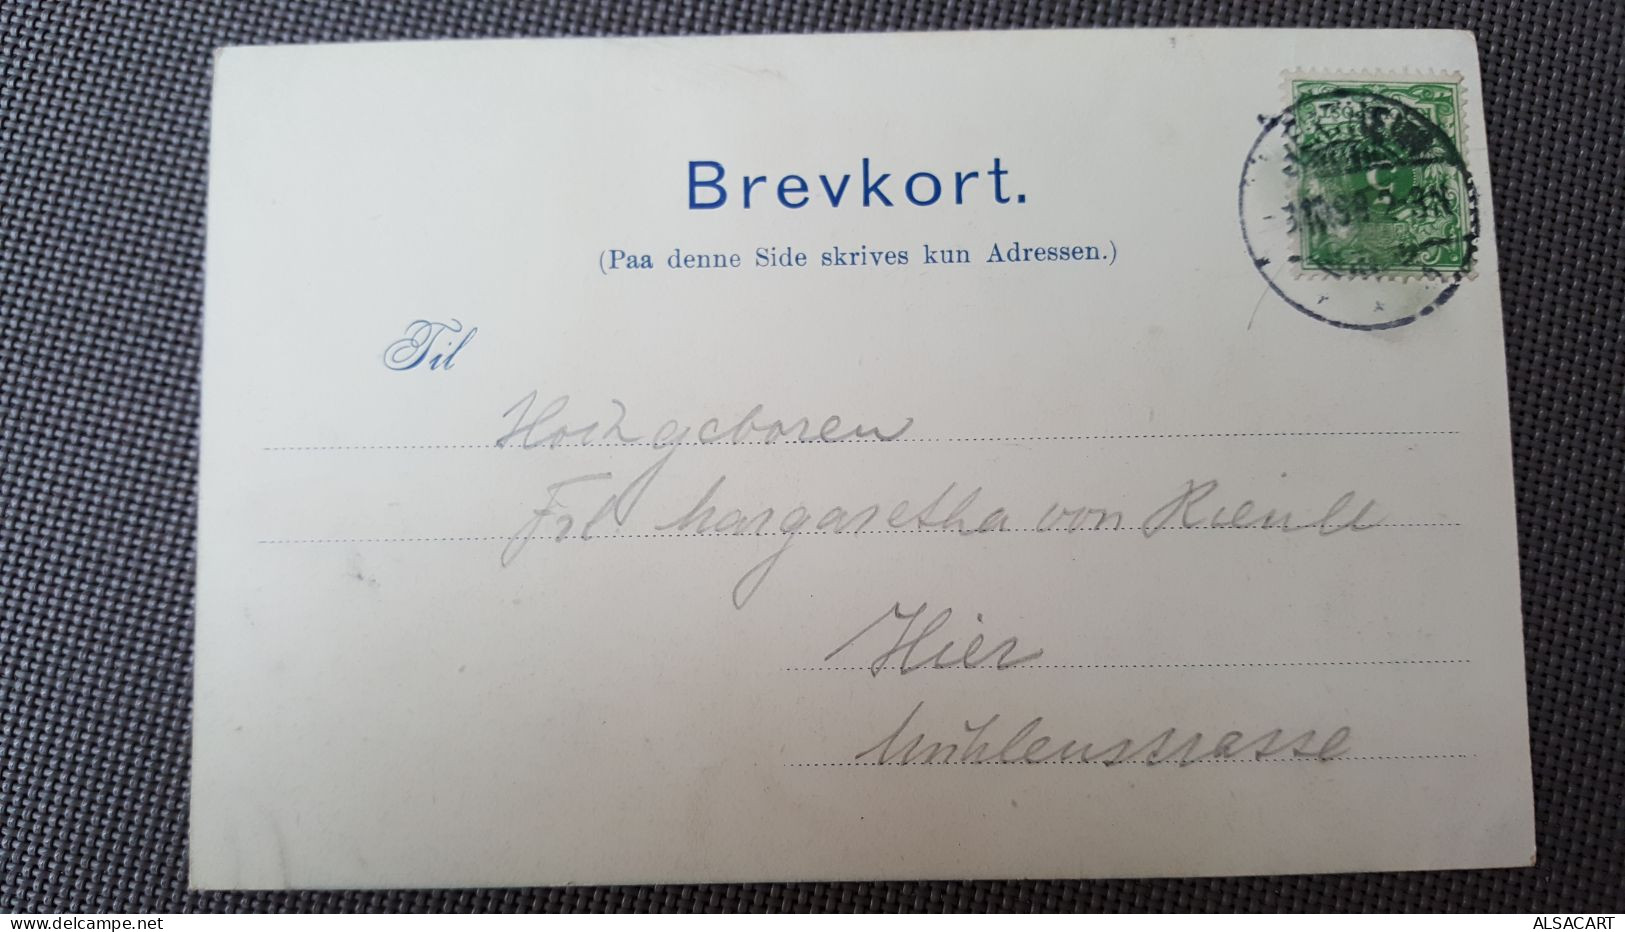 Brevkort.
(Paa denne Side skrives kun Adressen.)
Til
Hochgeboren
Frl Margaretha von
Hier
Mühlenstrasse
5
delcampe.net
ALSACART